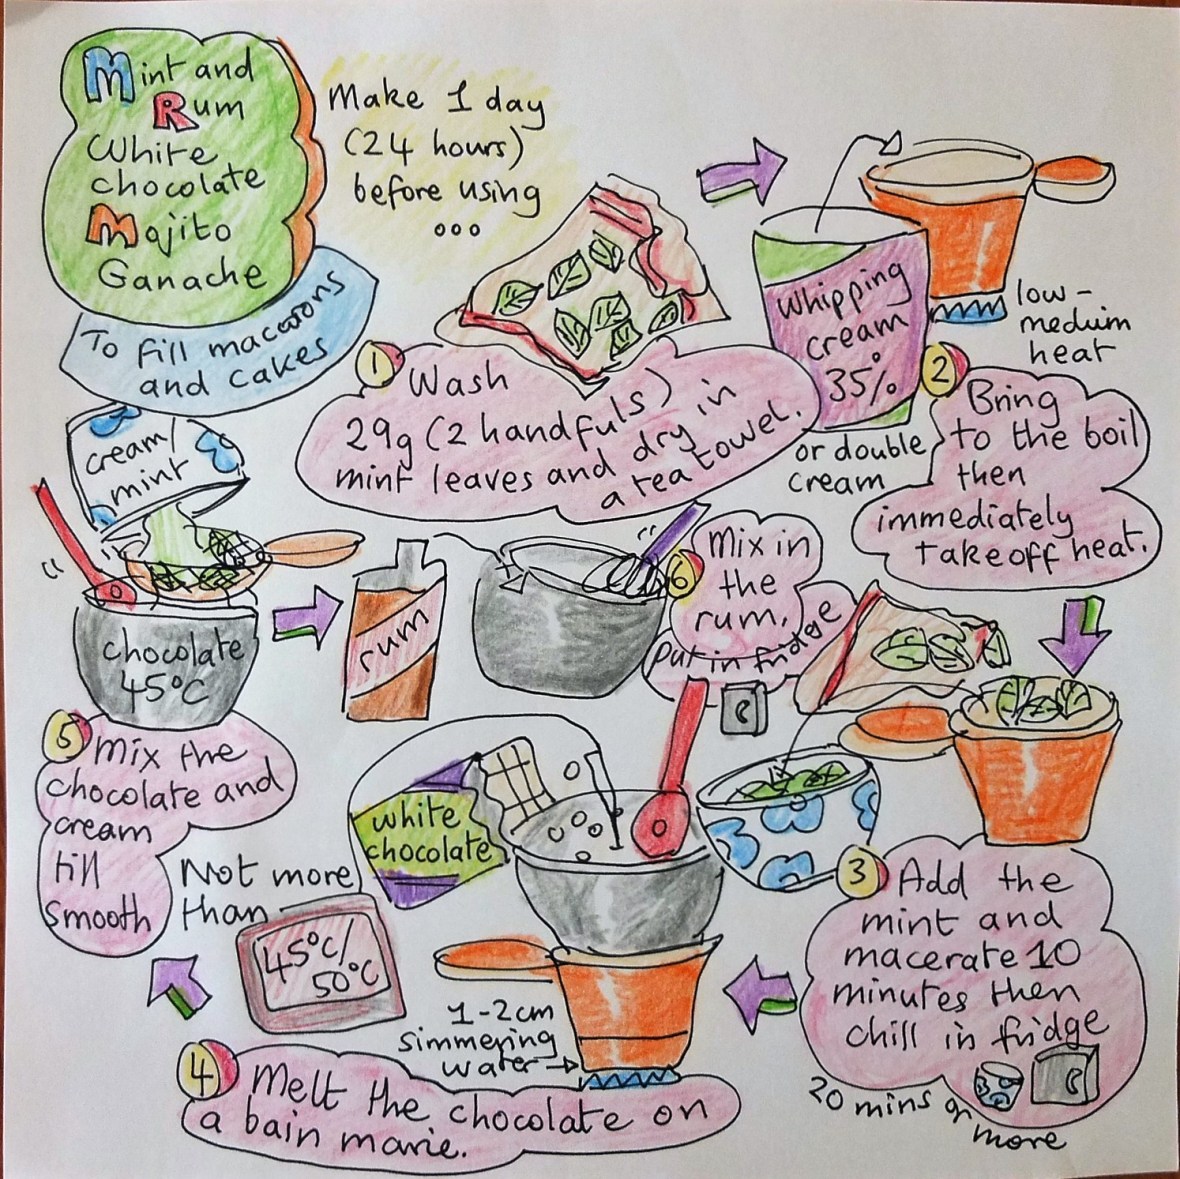 Mint and
Rum
White
chocolate
Mojito
Ganache
To fill macarons
and cakes
Make 1 day
(24 hours)
before using
...
1 Wash
29g (2 handfuls)
mint leaves and dry in
a tea towel.
whipping
cream
35%
or double
cream
low-
meduim
heat
2 Bring
to the boil
then
immediately
take off heat.
3 Add the
mint and
macerate 10
minutes then
chill in fridge
20 mins or
more
white
chocolate
1-2cm
simmering
water
4 Melt the chocolate on
a bain marie.
Not more
than
45°C/
50°C
cream/
mint
chocolate
45°C
5 Mix the
chocolate and
cream
till
smooth
rum
6 Mix in
the
rum.
put in fridge